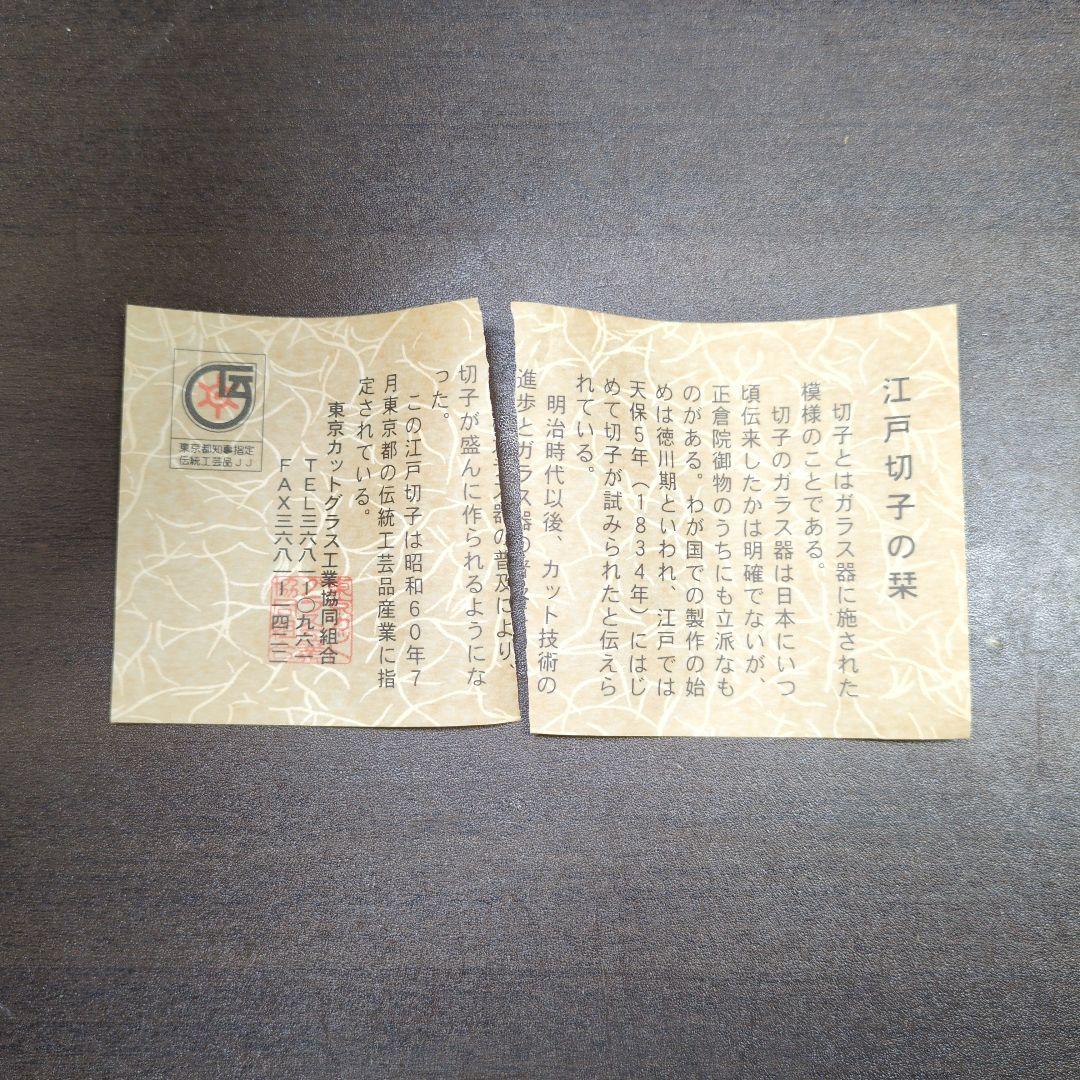 江戸切子の栞
切子とはガラス器に施された
模様のことである。
切子のガラス器は日本にいつ
頃伝来したかは明確でないが、
正倉院御物のうちにも立派なも
のがある。わが国での製作の始
めは徳川期といわれ、江戸では
天保5年(1834年)にはじ
めて切子が試みられたと伝えら
れている。
明治時代以後、カット技術の
進歩とガラス器の普及により、
切子が盛んに作られるようにな
った。
この江戸切子は昭和60年7
月東京都の伝統工芸品産業に指
定されている。
東京カットグラス工業協同組合
TEL三六八一ー〇九六一
FAX三六八一ー一四二二
伝
東京都知事指定
伝統工芸品JJ